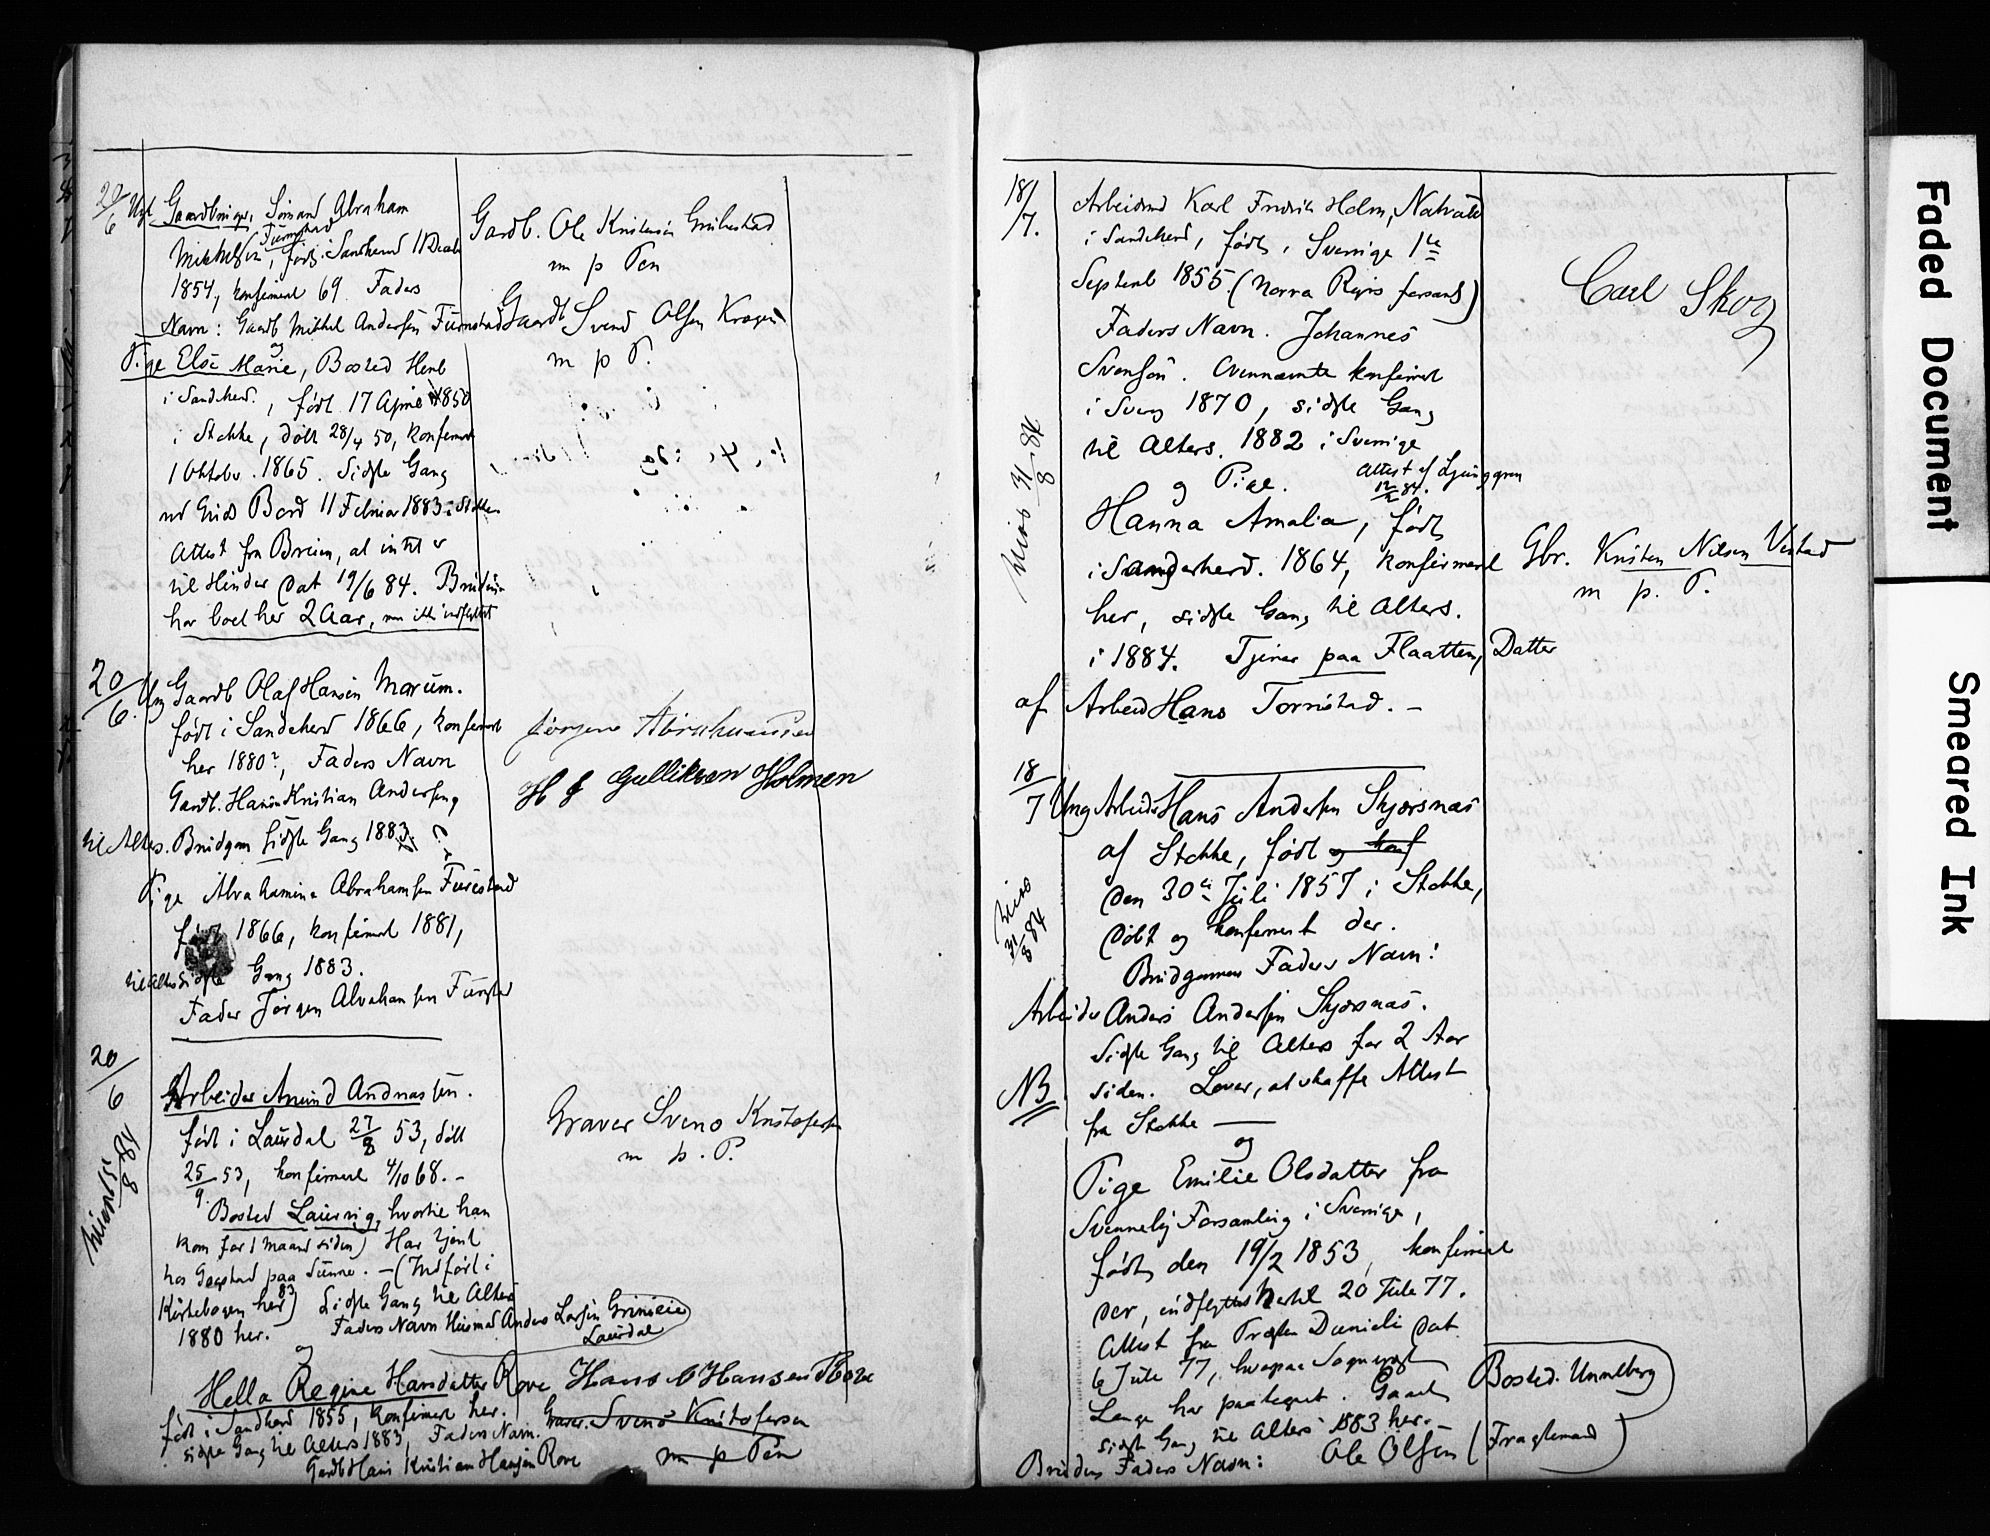 20/6 Ugk Gaardbruger, Simand Abraham
Furustad
Mikkelsen, født i Sandeherd 11 Decbr
1854, konfirmert 69. Faders
Navn: Gaardb Mikkel Andersen Furustad
og
Pige Else Marie, Bosted Hemb
i Sandeherd, født 17 April 1850
i Stokke, døbt 28/4 50, konfirmert
1 Oktober 1865. Sidste Gang
ved Guds Bord 11 Februar 1883 i Stokke
Attest fra Breien, at intet er
til Hinder dat 19/6 84. Bruden
har boet her 2 Aar, men ikke indflyttet
Gaardb. Ole Kristensen
m p Pen
Gaardb Svend Olsen
m p P.
20/6. Ung Gaardb Olaf Hansen Marum.
født i Sandeherd 1866, konfirmert
her 1880?, Faders Navn
Gaardb. Hans Kristian Andersen,
til Alters. Brudgom Sidste Gang 1883
Pige Abrahamine Abrahamsen Furustad
født 1866, konfirmert 1881,
til Alters sidste Gang 1883.
Fader Jørgen Abrahamsen Furustad
Jørgen Abrahamsen
H J Gulliksen Holmen
20/6
Arbeider Amund Andreassen.
født i Laurdal 27/8 53, døbt
25/9 53, konfirmert 4/10 68. –
Bosted Laurvig, hvortil han
kom for 1 Maaned siden) Har tjent
hos paa – (Indført i
Kirkebogen her 83) Sidste Gang til Alters
1880 her. Faders Navn Husmand Anders Larsen Grimseie
Laurdal
og
Hella Regine Hansdatter Rove
født i Sandeherd 1855, konfirmert her.
sidste Gang til Alters 1883, Faders Navn.
Gaardb Hans Kristian Hansen Rove
Graver Svend Kristofersen
m p. P.
Hans C Hansen Rove
Graver Svend Kristofersen
m p Pen
18/7.
Arbeidsmd Karl Fredrik Holm,
i Sandeherd, født i Sverige 1ste
Septemb 1855. (Norra forsaml)
Faders Navn. Johannes
Svensøn. Ovennævnte konfirmert
i Sverig 1870, sidste Gang
til Alters. 1882 i Sverige
og Pige. Attest af Ljunggren
12/2 84.
Hanna Amalia, født
i Sandeherd. 1864, konfirmert
her, sidste Gang til Alters.
i 1884. Tjener paa Flaatten, Datter
af Arbeid Hans Tornstad. –
Carl Skog
Gbr. Kristen Nilsen Vestad
m p. P.
18/7 Ung Arbeider Hans Andersen Skjærsnæs
af Stokke, født og konf
den 30te Juli 1857 i Stokke,
døbt og konfirmert der.
Brudgommens Faders Navn:
Arbeider Anders Andersen Skjærsnæs.
Sidste Gang til Alters for 2 Aar
NB siden. Lover, at skaffe Attest
fra Stokke —
og
Pige Emilie Olsdatter fra
Svenneby Forsamling i Sverige,
født den 19/2 1853, konfirmert
der, indflyttet hertil 20 Jule 77.
Attest fra Præsten Danieli dat
6 Jule 77, hvorpaa Sognepræst
Lange har paategnet.
sidste Gang til Alters 1883 her.
Brudens Faders Navn: Ole Olsen
Bosted. Unnelberg
Faded Document
Smeared Ink